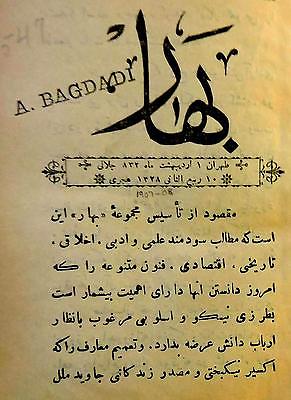 بهار
A. BAGDADI
طهران ۱ اردیبهشت ماه ۸۳۲ جلالی
۱۰ ربیع الثانی ۱۳۲۸ هجری
1907-08
مقصود از تأسیس مجموعهٔ «بهار» این
است که مطالب سودمند علمی و ادبی ، اخلاقی ،
تاریخی ، اقتصادی ، فنون متنوعه را که
امروز دانستن آنها دارای اهمیت بیشمار است
بطرزی نیکو و اسلوبی مرغوب بانظار
ارباب دانش عرضه بدارد. وتعمیم معارف راکه
اکسیر نیکبختی و مصدر زندگانی جاوید ملل